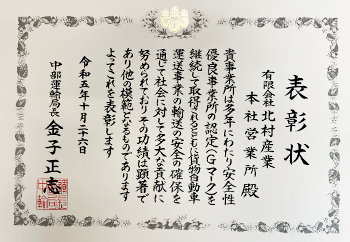 表彰状
有限会社北村産業
本社営業所殿
貴事業所は多年にわたり安全性
優良事業所の認定（Gマーク）を
継続して取得されるとともに貨物自動車
運送事業の輸送の安全の確保を
通じて社会に対して多大な貢献に
努められておりその功績は顕著で
あり他の模範となるものであります
よってこれを表彰します
令和五年十月二十六日
中部運輸局長 金子正志